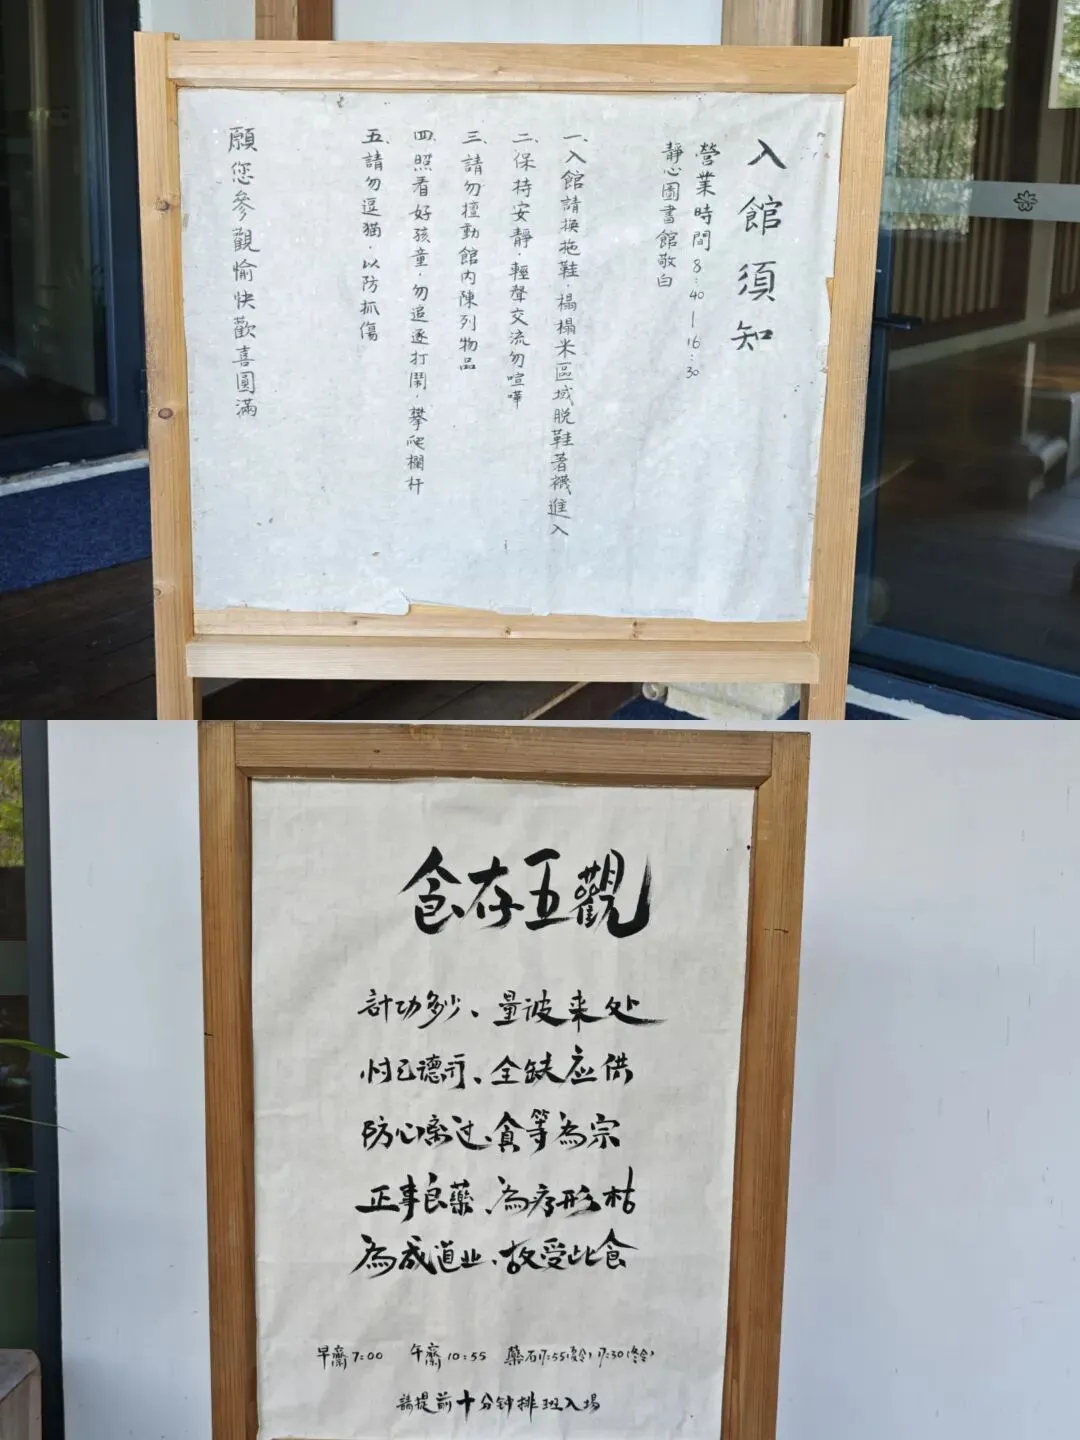 入館須知
營業時間8:40—16:30
靜心圖書館敬白
一、入館請換拖鞋，榻榻米區域脫鞋著襪進入
二、保持安靜，輕聲交流勿喧嘩
三、請勿擅動館內陳列物品
四、照看好孩童，勿追逐打鬧，攀爬欄杆
五、請勿逗猫，以防抓傷
願您參觀愉快歡喜圓滿
食存五觀
計功多少、量彼来处
忖己德行、全缺应供
防心离过、貪等為宗
正事良藥、為疗形枯
為成道业、故受此食
早齋7:00 午齋10:55 藥石17:55(夏令)17:30(冬令)
請提前十分钟排班入場